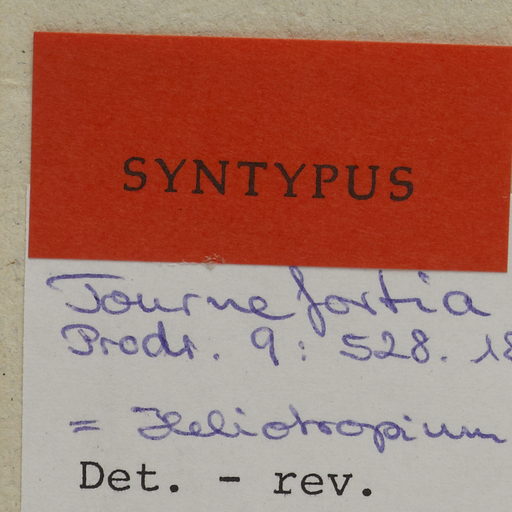 SYNTYPUS
Tournefortia
Prodr. 9: 528. 18
= Heliotropium
Det. - rev.